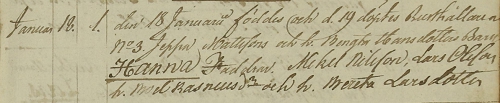 Januar 18. 1. den 18 Januarii föddes och d. 19 döptes Rusthållaren
No 3 Jeppa Mattissons och h. Bengta Hansdotters Barn
Hanna Faddrar. Mikel Nilsson, Lars Olsson
h. Boel Rasmus Dr och h. Bereta Lars dotter